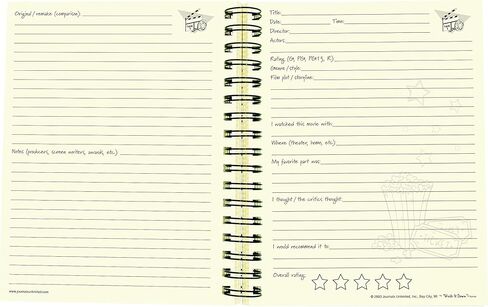 Original / remake (comparison)
Notes (producers, screen writers, awards, etc.)
www.journalsunlimited.com
Title:
Date: Time:
Director:
Actors:
Rating (G, PG, PG13, R)
Genre / style:
Film plot / storyline:
I watched this movie with:
Where (theater, home, etc.)
My favorite part was:
I thought / the critics thought:
I would recommend it to:
Overall rating:
© 2003 Journals Unlimited, Inc., Bay City, MI "Write It Down"